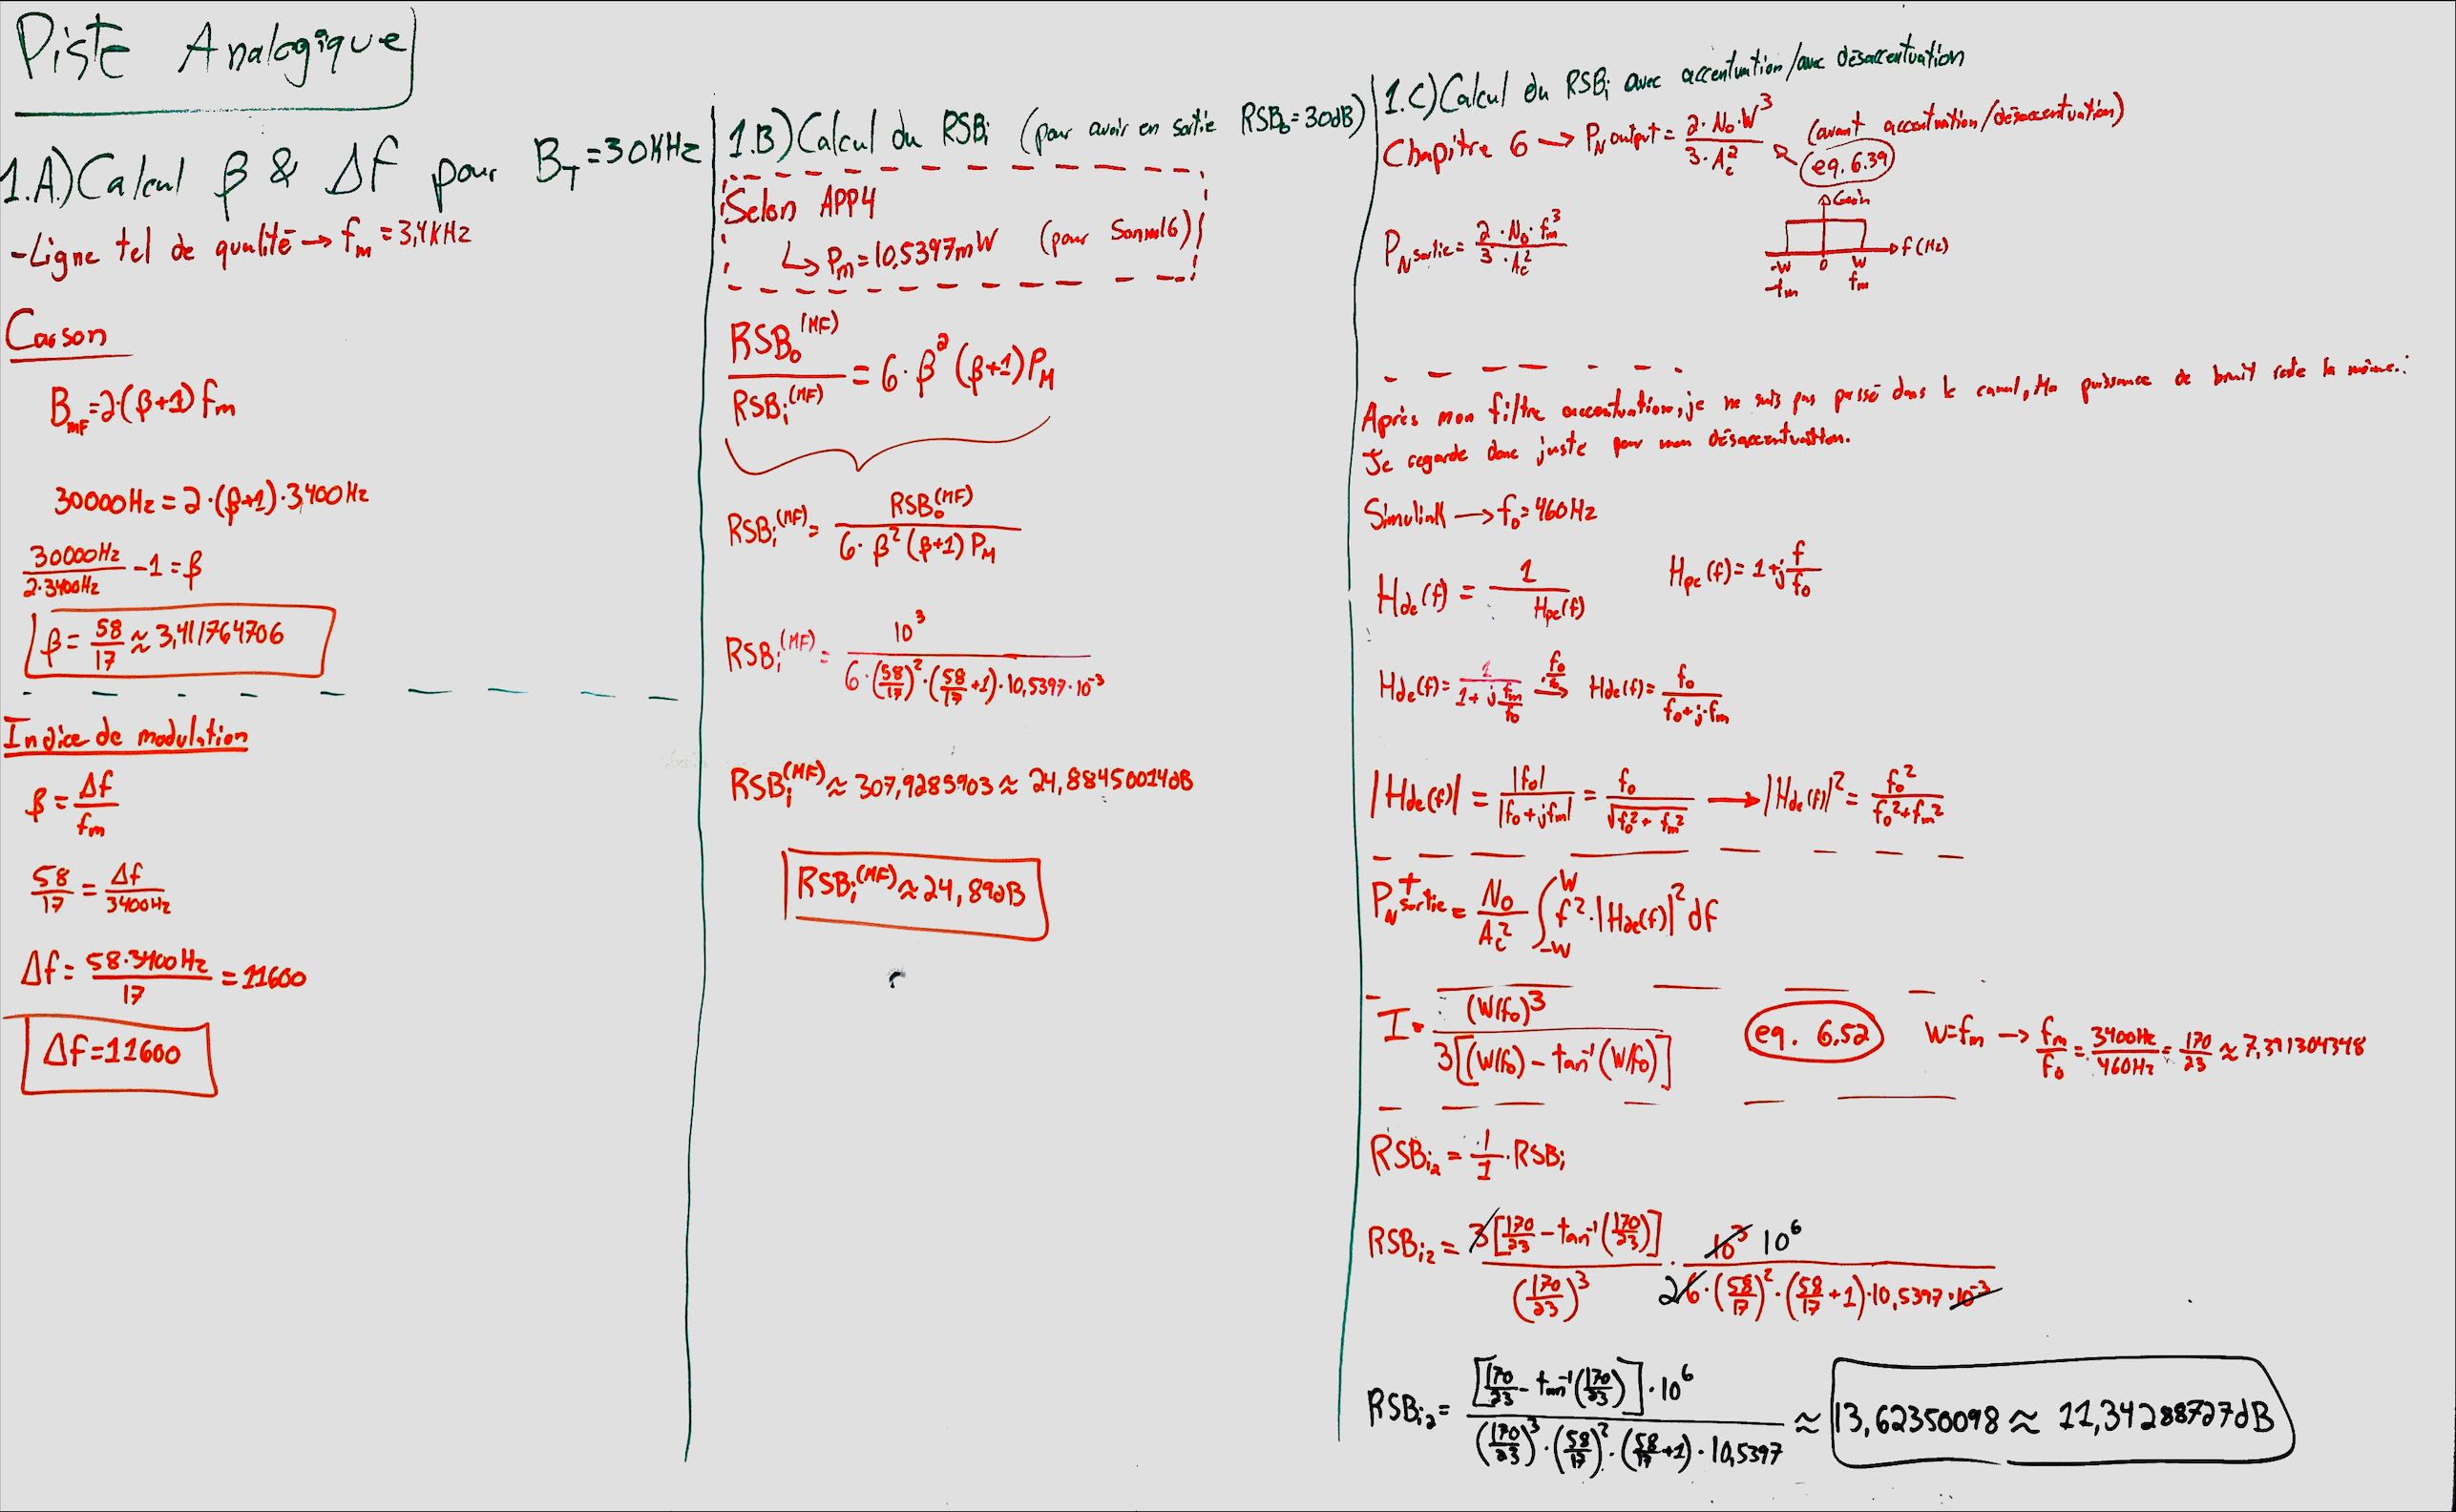 Piste Analogique
1.A) Calcul β & Δf pour B_T = 30KHz
-Ligne tel de qualité → f_m = 3,4KHz
Carson
B_MF = 2·(β+1) f_m
30000Hz = 2·(β+1)·3400Hz
30000Hz / 2·3400Hz - 1 = β
β = 58/17 ≈ 3,411764706
Indice de modulation
β = Δf / f_m
58/17 = Δf / 3400Hz
Δf = 58·3400Hz / 17 = 11600
Δf = 11600
1.B) Calcul du RSBi (pour avoir en sortie RSB₀ = 30dB)
Selon APP4
↳ P_m = 10,5397mW (pour Sonml6)
RSB₀^(MF) / RSBi^(MF) = 6·β²(β+1)P_M
RSBi^(MF) = RSB₀^(MF) / 6·β²(β+1)P_M
RSBi^(MF) = 10³ / 6·(58/17)²·(58/17+1)·10,5397·10⁻³
RSBi^(MF) ≈ 307,9285903 ≈ 24,88450014dB
RSBi^(MF) ≈ 24,89dB
1.C) Calcul du RSBi avec accentuation/avec désaccentuation
Chapitre 6 → P_N output = 2·N₀·W³ / 3·A_c² (avant accentuation/désaccentuation)
(eq. 6.39)
P_N sortie = 2·N₀·f_m³ / 3·A_c²
Gain
f(Hz)
-W 0 W
-f_m f_m
Après mon filtre accentuation, je ne suis pas passé dans le canal, Ma puissance de bruit reste la même.
Je regarde donc juste pour mon désaccentuation.
Simulink → f₀ = 460Hz
H_de(f) = 1 / H_pe(f) H_pe(f) = 1+j f/f₀
H_de(f) = 1 / 1+j f_m/f₀ ·f₀/f₀ → H_de(f) = f₀ / f₀+j·f_m
|H_de(f)| = |f₀| / |f₀+jf_m| = f₀ / √(f₀²+f_m²) → |H_de(f)|² = f₀² / f₀²+f_m²
P_N sortie⁺ = N₀/A_c² ∫_-W^W f²·|H_de(f)|² df
I = (W/f₀)³ / 3[(W/f₀) - tan⁻¹(W/f₀)] eq. 6.52 W=f_m → f_m/f₀ = 3400Hz/460Hz = 170/23 ≈ 7,391304348
RSBi₂ = 1/I · RSBi
RSBi₂ = 3[170/23 - tan⁻¹(170/23)] / (170/23)³ · 10³ 10⁶ / 2 6·(58/17)²·(58/17+1)·10,5397·10⁻³
RSBi₂ = [170/23 - tan⁻¹(170/23)]·10⁶ / (170/23)³·(58/17)²·(58/17+1)·10,5397 ≈ 13,62350098 ≈ 11,34288727dB